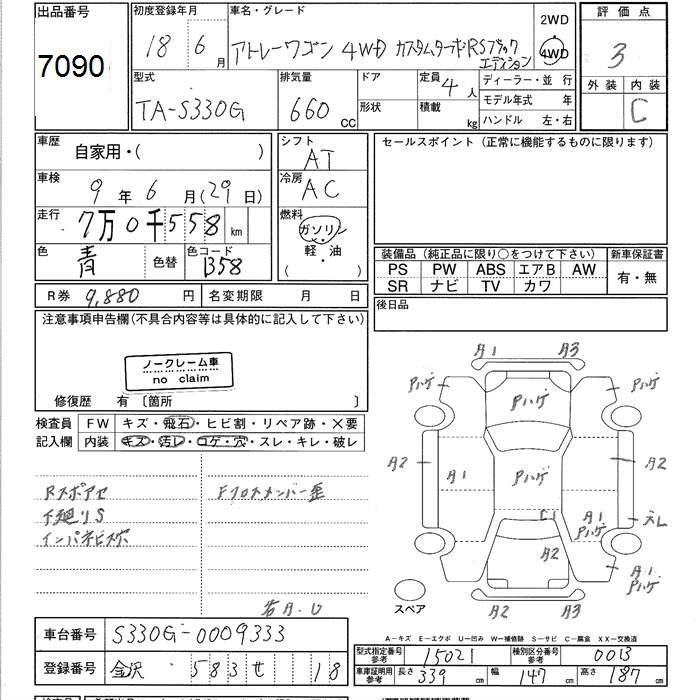 出品番号
7090
初度登録年月
18年 6月
車名・グレード
アトレーワゴン 4WD カスタムターボRSブラック
エディション
2WD
4WD
評価点
3
外装 内装
C
型式
TA-S330G
排気量
660 CC
ドア
形状
定員 4人
積載 kg
ディーラー・並行
モデル年式 年
ハンドル 左・右
車歴
自家用・( )
シフト
AT
セールスポイント(正常に機能するものに限ります)
車検
9年 6月(29日)
冷房
AC
走行
7万0千558km
燃料
ガソリン
軽・油
( )
色
青
色替
色コード
B58
装備品(純正品に限り○をつけて下さい)
新車保証書
PS PW ABS エアB AW
SR ナビ TV カワ
有・無
R券 9,880円
名変期限 月 日
後日品
注意事項申告欄(不具合内容等は具体的に記入して下さい)
ノークレーム車
no claim
修復歴 有〔箇所 〕
検査員
記入欄
FW キズ・飛石・ヒビ割・リペア跡・×要
内装 キズ・汚レ・コゲ・穴・スレ・キレ・破レ
Rスポアセ
下廻りS
インパネビスボ
Fクロスメンバー歪
若A.U
A1 A3
Pハゲ Pハゲ Pハゲ
A2 A1 Pハゲ A2
C1 A1 Pハゲ スレ
A2 A1 Pハゲ
A2 A3
スペア
A―キズ E―エクボ U―凹み W―補修跡 S―サビ C―腐食 XX―交換済
車台番号
S330G-0009333
登録番号
金沢 583 せ 18
型式指定番号
参考
15021
種別区分番号
参考
0013
車庫証明用
参考
長さ 339 cm
幅 147 cm
高さ 187 cm